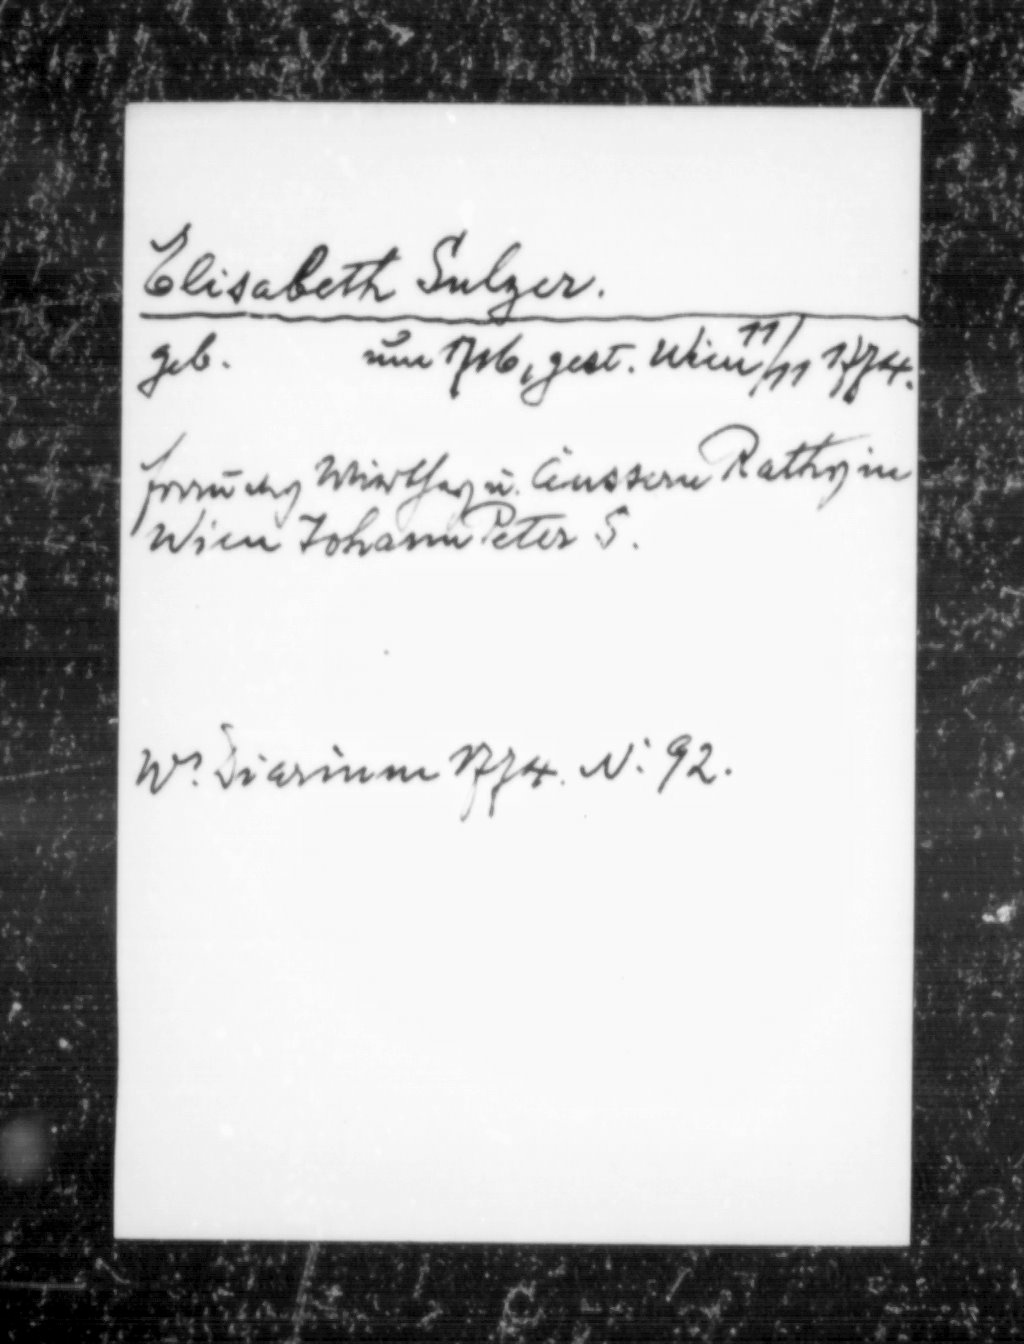 Elisabeth Sulzer.
geb. um 1716, gest. Wien 11/11 1774.
Wirths u. äussern Raths in
Wien Johann Peter S.
Wr. Diarium 1774. N. 92.